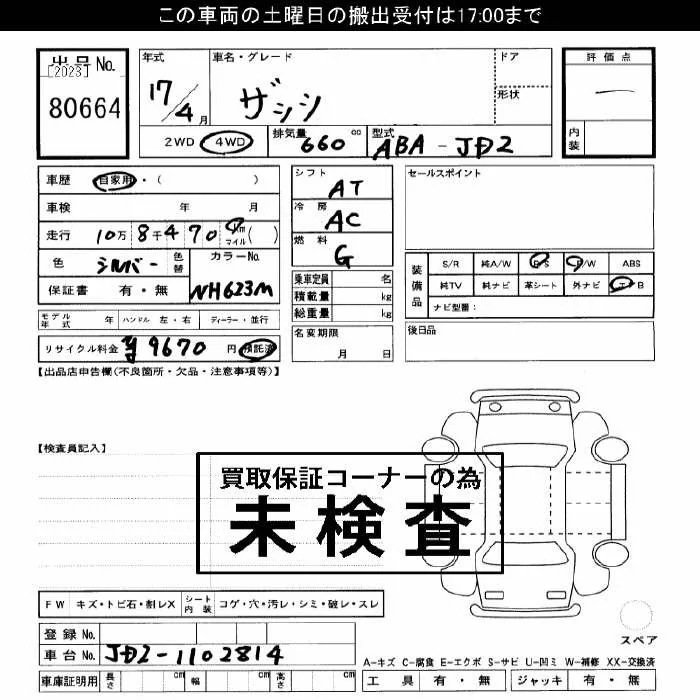 この車両の土曜日の搬出受付は17:00まで
出品No.
[2023]
80664
年式
17/4月
車名・グレード
ザッシシ
ドア
形状
2WD 4WD
排気量 660 cc
型式 ABA-JD2
評価点
—
内装
車歴 自家用・( )
車検 年 月
走行 10万 8千 4 7 0 km マイル( )
色 シルバー 色替
カラーNo. NH623M
保証書 有・無
シフト AT
冷房 AC
燃料 G
乗車定員 名
積載量 kg
総重量 kg
名変期限
月 日
セールスポイント
装備品
S/R 純A/W P/S P/W ABS
純TV 純ナビ 革シート 外ナビ エアB
ナビ型番:
後日品
モデル年式 年 ハンドル 左・右 ディーラー・並行
リサイクル料金 ¥9670 円 預託済
【出品店申告欄(不良箇所・欠品・注意事項等)】
【検査員記入】
買取保証コーナーの為
未検査
FW キズ・トビ石・割レX シート内装 コゲ・穴・汚レ・シミ・破レ・スレ
登録No.
車台No. JD2-1102814
車庫証明用 長さ cm 幅 cm 高さ cm
スペア
A-キズ C-腐食 E-エクボ S-サビ U-凹ミ W-補修 XX-交換済
工具 有・無 ジャッキ 有・無